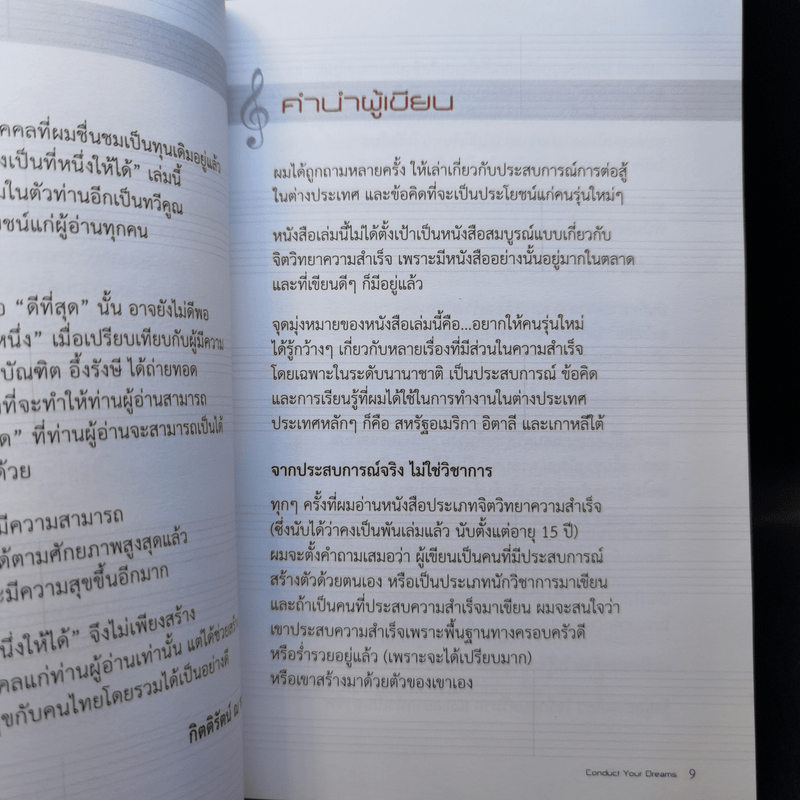 คคลที่ผมชื่นชมเป็นทุนเดิมอยู่แล้ว
งเป็นที่หนึ่งให้ได้” เล่มนี้
มในตัวท่านอีกเป็นทวีคูณ
ยชน์แก่ผู้อ่านทุกคน
อ “ดีที่สุด” นั้น อาจยังไม่ดีพอ
หนึ่ง” เมื่อเปรียบเทียบกับผู้มีความ
บัณฑิต อึ้งรังษี ได้ถ่ายทอด
ที่จะทำให้ท่านผู้อ่านสามารถ
ด” ที่ท่านผู้อ่านจะสามารถเป็นได้
ด้วย
มีความสามารถ
ด้ตามศักยภาพสูงสุดแล้ว
ะมีความสุขขึ้นอีกมาก
นึ่งให้ได้” จึงไม่เพียงสร้าง
คลแก่ท่านผู้อ่านเท่านั้น แต่ได้ช่วยสร้าง
ุขกับคนไทยโดยรวมได้เป็นอย่างดี
กิตติรัตน์ ณ
คำนำผู้เขียน
ผมได้ถูกถามหลายครั้ง ให้เล่าเกี่ยวกับประสบการณ์การต่อสู้
ในต่างประเทศ และข้อคิดที่จะเป็นประโยชน์แก่คนรุ่นใหม่ๆ
หนังสือเล่มนี้ไม่ได้ตั้งเป้าเป็นหนังสือสมบูรณ์แบบเกี่ยวกับ
จิตวิทยาความสำเร็จ เพราะมีหนังสืออย่างนั้นอยู่มากในตลาด
และที่เขียนดีๆ ก็มีอยู่แล้ว
จุดมุ่งหมายของหนังสือเล่มนี้คือ...อยากให้คนรุ่นใหม่
ได้รู้กว้างๆ เกี่ยวกับหลายเรื่องที่มีส่วนในความสำเร็จ
โดยเฉพาะในระดับนานาชาติ เป็นประสบการณ์ ข้อคิด
และการเรียนรู้ที่ผมได้ใช้ในการทำงานในต่างประเทศ
ประเทศหลักๆ ก็คือ สหรัฐอเมริกา อิตาลี และเกาหลีใต้
จากประสบการณ์จริง ไม่ใช่วิชาการ
ทุกๆ ครั้งที่ผมอ่านหนังสือประเภทจิตวิทยาความสำเร็จ
(ซึ่งนับได้ว่าคงเป็นพันเล่มแล้ว นับตั้งแต่อายุ 15 ปี)
ผมจะตั้งคำถามเสมอว่า ผู้เขียนเป็นคนที่มีประสบการณ์
สร้างตัวด้วยตนเอง หรือเป็นประเภทนักวิชาการมาเขียน
และถ้าเป็นคนที่ประสบความสำเร็จมาเขียน ผมจะสนใจว่า
เขาประสบความสำเร็จเพราะพื้นฐานทางครอบครัวดี
หรือร่ำรวยอยู่แล้ว (เพราะจะได้เปรียบมาก)
หรือเขาสร้างมาด้วยตัวของเขาเอง
Conduct Your Dreams 9